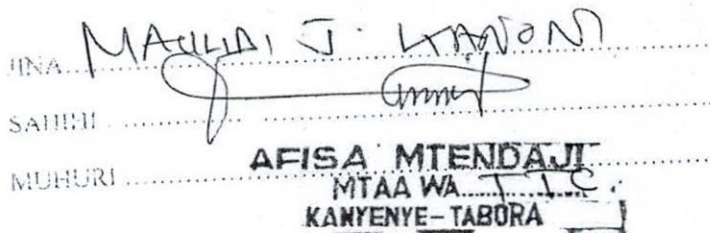 JINA MAULIDI J. KANONI
SAHIHI
MUHURI AFISA MTENDAJI
MTAA WA T T C.
KANYENYE-TABORA